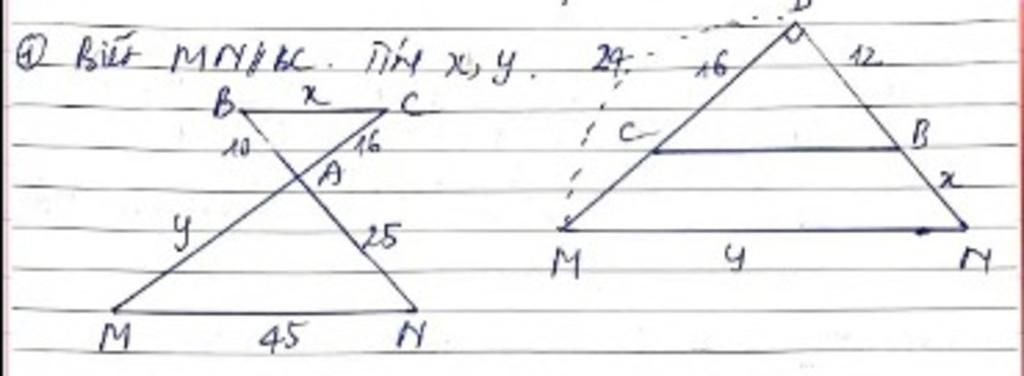 ④ Biết MN∥BC. Tính x, y.
B x C
10 16
A
y 25
M 45 N
D
24 16 12
C B
x
M y N